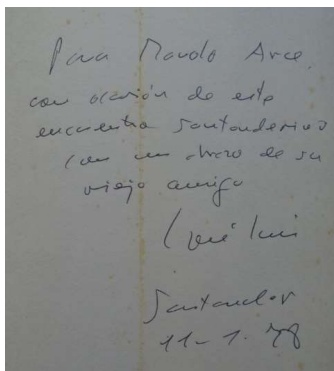 Para Manolo Arce
con ocasión de este
encuentro santanderino
con un abrazo de su
viejo amigo
José Luis
Santander
11-1-78